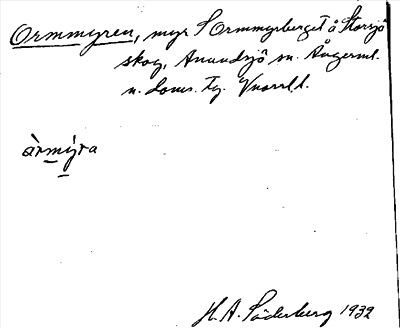 Ormmyren, myr S Ormmyrberget å Storsjö
skog, Anundsjö sn. Ångerml.
n. Doms. Tg.
àrmýra
H. A. Söderberg 1932